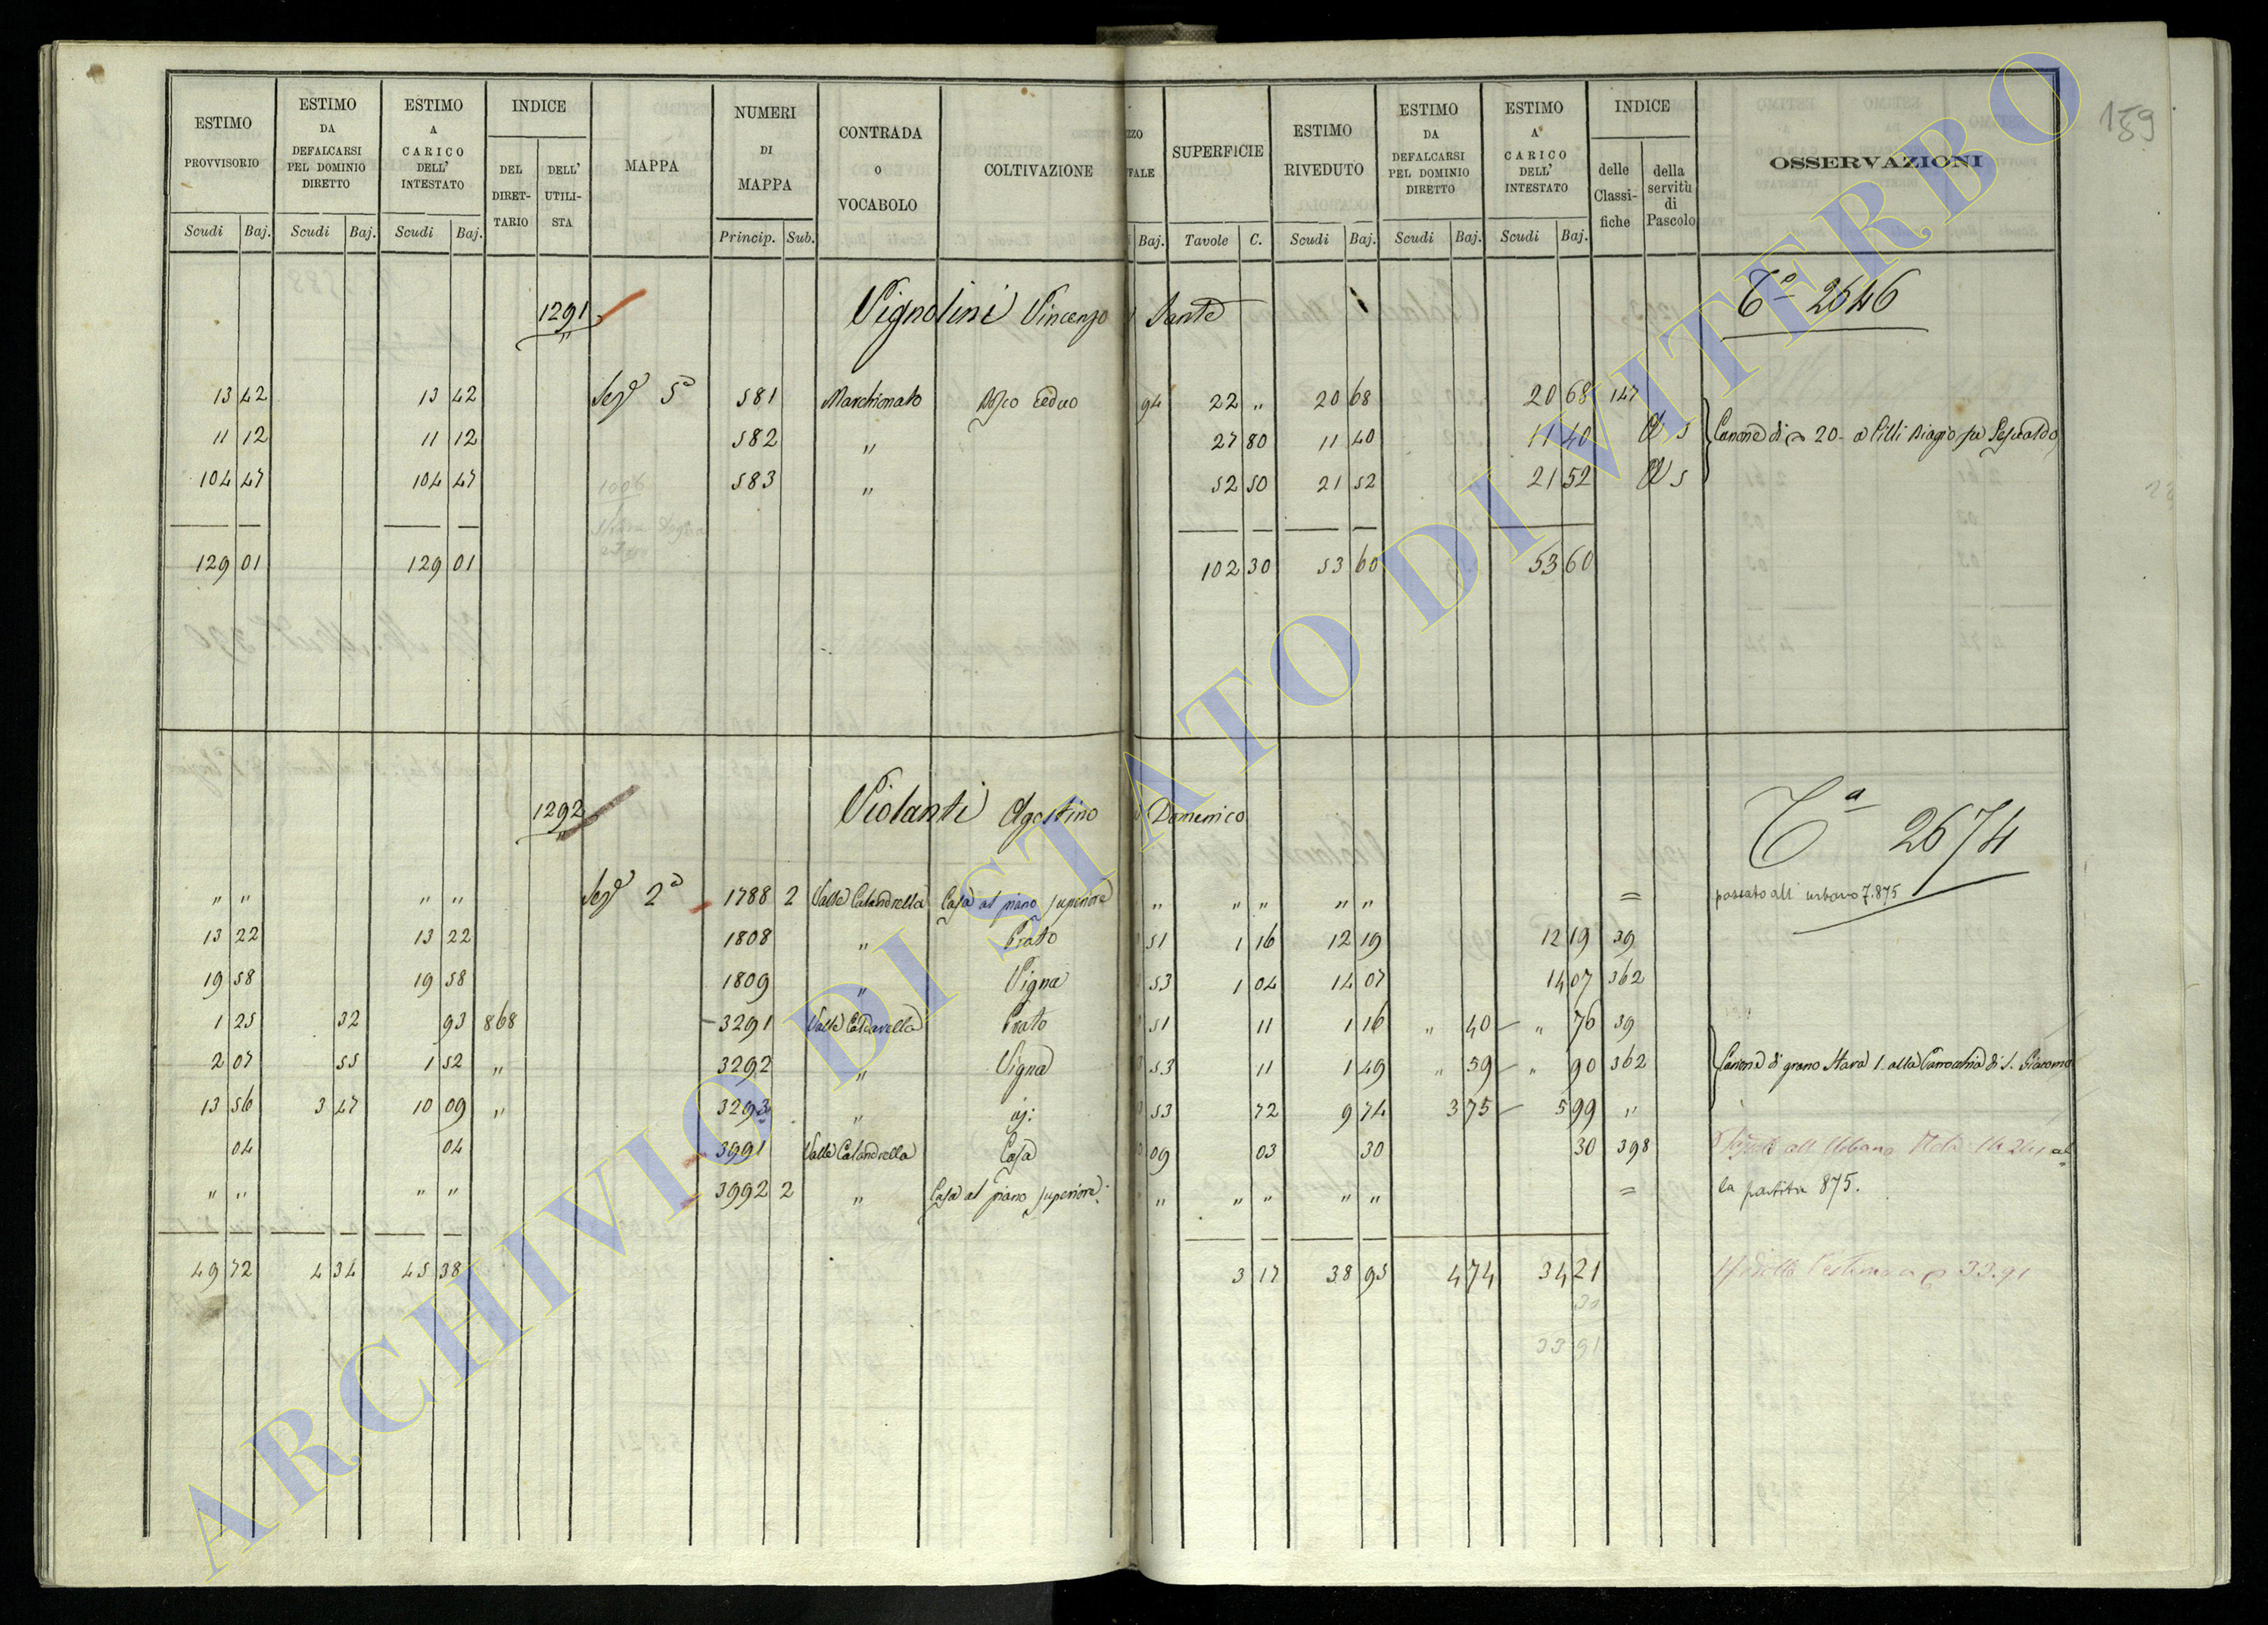 ESTIMO PROVVISORIO Scudi Baj.
ESTIMO DA DEFALCARSI PEL DOMINIO DIRETTO Scudi Baj.
ESTIMO A CARICO DELL' INTESTATO Scudi Baj.
INDICE DEL DIRET-TARIO DELL' UTILI-STA
MAPPA
NUMERI DI MAPPA Princip. Sub.
CONTRADA O VOCABOLO
COLTIVAZIONE
ZZO FALE Baj.
SUPERFICIE Tavole C.
ESTIMO RIVEDUTO Scudi Baj.
ESTIMO DA DEFALCARSI PEL DOMINIO DIRETTO Scudi Baj.
ESTIMO A CARICO DELL' INTESTATO Scudi Baj.
INDICE delle Classi-fiche della servitù di Pascolo
OSSERVAZIONI
159
1291 Vignolini Vincenzo Sante 2646
13 42 13 42 Sez 5a 581 Marchionato Bosco Ceduo 94 22 " 20 68 20 68 147
11 12 11 12 582 " 27 80 11 40 11 40 s Canone di 20 a Pilli Biagio
104 47 104 47 583 " 52 50 21 52 21 52 s
129 01 129 01 102 30 53 60 53 60
1292 Violanti Agostino Domenico 2674
" " " " Sez 2a 1788 2 Valle Calandrella Casa al piano superiore " " " " " = passato all' urbano 7.875
13 22 13 22 1808 " Prato 51 1 16 12 19 12 19 39
19 58 19 58 1809 " Vigna 53 1 04 14 07 14 07 362
1 25 32 93 868 3291 Valle Caldarella Prato 51 11 1 16 " 40 " 76 39
2 07 55 1 52 " 3292 " Vigna 53 11 1 49 " 59 " 90 362 Canone di grano Stara 1 alla Parrocchia di S. Giacomo
13 56 3 47 10 09 " 3293 " 53 72 9 74 3 75 5 99 "
04 04 3991 Valle Calandrella Casa 09 03 30 30 398 all Urbano al
" " " " 3992 2 " Casa al piano superiore " " " " " = la partita 875.
49 72 4 34 45 38 3 17 38 95 4 74 34 21 l'estimo a 33.91
30
33 91
ARCHIVIO DI STATO DI VITERBO